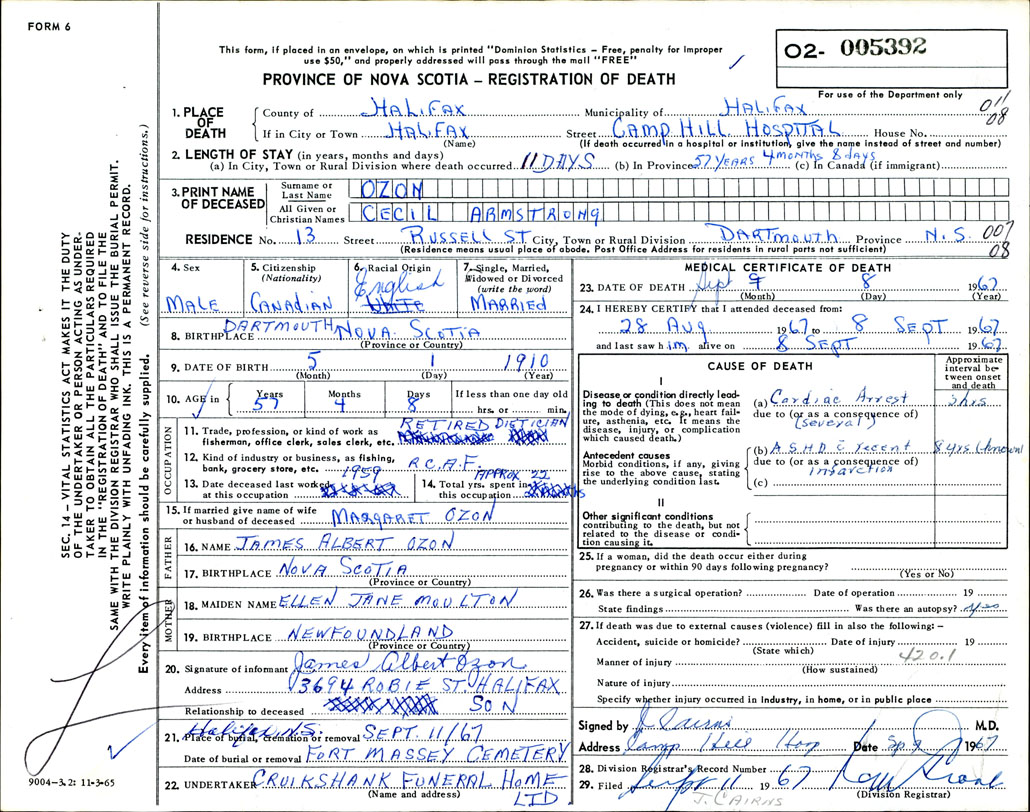 FORM 6
This form, if placed in an envelope, on which is printed "Dominion Statistics – Free, penalty for improper
use $50," and properly addressed will pass through the mail "FREE"
PROVINCE OF NOVA SCOTIA – REGISTRATION OF DEATH
O2- 005392
For use of the Department only
011
08
1. PLACE OF DEATH
County of HALIFAX Municipality of HALIFAX
If in City or Town HALIFAX Street CAMP HILL HOSPITAL House No.
(Name) (If death occurred in a hospital or institution, give the name instead of street and number)
2. LENGTH OF STAY (in years, months and days)
(a) In City, Town or Rural Division where death occurred 11 DAYS (b) In Province 57 YEARS 4 MONTHS 8 days (c) In Canada (if immigrant)
3. PRINT NAME OF DECEASED
Surname or Last Name OZON
All Given or Christian Names CECIL ARMSTRONG
RESIDENCE No. 13 Street RUSSELL ST City, Town or Rural Division DARTMOUTH Province N.S. 007
08
(Residence means usual place of abode. Post Office Address for residents in rural parts not sufficient)
4. Sex
MALE
5. Citizenship
(Nationality)
CANADIAN
6. Racial Origin
English
WHITE
7. Single, Married,
Widowed or Divorced
(write the word)
MARRIED
8. BIRTHPLACE DARTMOUTH NOVA SCOTIA
(Province or Country)
9. DATE OF BIRTH 5 1 1910
(Month) (Day) (Year)
10. AGE in
Years Months Days If less than one day old
57 4 8 hrs. or min.
OCCUPATION
11. Trade, profession, or kind of work as
fisherman, office clerk, sales clerk, etc. RETIRED DIETICIAN
12. Kind of industry or business, as fishing,
bank, grocery store, etc. R.C.A.F.
13. Date deceased last worked
at this occupation 1959
14. Total yrs. spent in
this occupation APPROX 22
15. If married give name of wife
or husband of deceased MARGARET OZON
FATHER
16. NAME JAMES ALBERT OZON
17. BIRTHPLACE NOVA SCOTIA
(Province or Country)
MOTHER
18. MAIDEN NAME ELLEN JANE MOULTON
19. BIRTHPLACE NEWFOUNDLAND
(Province or Country)
20. Signature of informant James Albert Ozon
Address 3694 ROBIE ST. HALIFAX
Relationship to deceased SON
21. Place of burial, cremation or removal Halifax N.S. SEPT. 11/67
Date of burial or removal FORT MASSEY CEMETERY
22. UNDERTAKER CRUIKSHANK FUNERAL HOME
(Name and address) LTD
MEDICAL CERTIFICATE OF DEATH
23. DATE OF DEATH Sept 9 8 1967
(Month) (Day) (Year)
24. I HEREBY CERTIFY that I attended deceased from:
28 Aug 1967 to 8 SEPT 1967
and last saw him alive on 8 SEPT 1967
CAUSE OF DEATH
Approximate
interval be-
tween onset
and death
I
Disease or condition directly lead-
ing to death (This does not mean
the mode of dying, e.g., heart fail-
ure, asthenia, etc. It means the
disease, injury, or complication
which caused death.)
(a) Cardiac Arrest
due to (or as a consequence of)
(several)
hrs
Antecedent causes
Morbid conditions, if any, giving
rise to the above cause, stating
the underlying condition last.
(b) A.S.H.D. c recent 8 yrs (known)
due to (or as a consequence of)
infarction
(c)
II
Other significant conditions
contributing to the death, but not
related to the disease or condi-
tion causing it.
25. If a woman, did the death occur either during
pregnancy or within 90 days following pregnancy?
(Yes or No)
26. Was there a surgical operation? Date of operation 19
State findings Was there an autopsy? yes
27. If death was due to external causes (violence) fill in also the following: –
Accident, suicide or homicide? Date of injury 19
(State which)
420.1
Manner of injury
(How sustained)
Nature of injury
Specify whether injury occurred in Industry, in home, or in public place
Signed by J Cairns M.D.
Address Camp Hill Hosp Date Sp. 9 1967
28. Division Registrar's Record Number
29. Filed Sept 11 1967
(Division Registrar)
J. CAIRNS
SEC. 14 – VITAL STATISTICS ACT MAKES IT THE DUTY
OF THE UNDERTAKER OR PERSON ACTING AS UNDER-
TAKER TO OBTAIN ALL THE PARTICULARS REQUIRED
IN THE "REGISTRATION OF DEATH" AND TO FILE THE
SAME WITH THE DIVISION REGISTRAR WHO SHALL ISSUE THE BURIAL PERMIT.
WRITE PLAINLY WITH UNFADING INK. THIS IS A PERMANENT RECORD.
Every item of information should be carefully supplied. (See reverse side for instructions.)
9004-3.2: 11-3-65